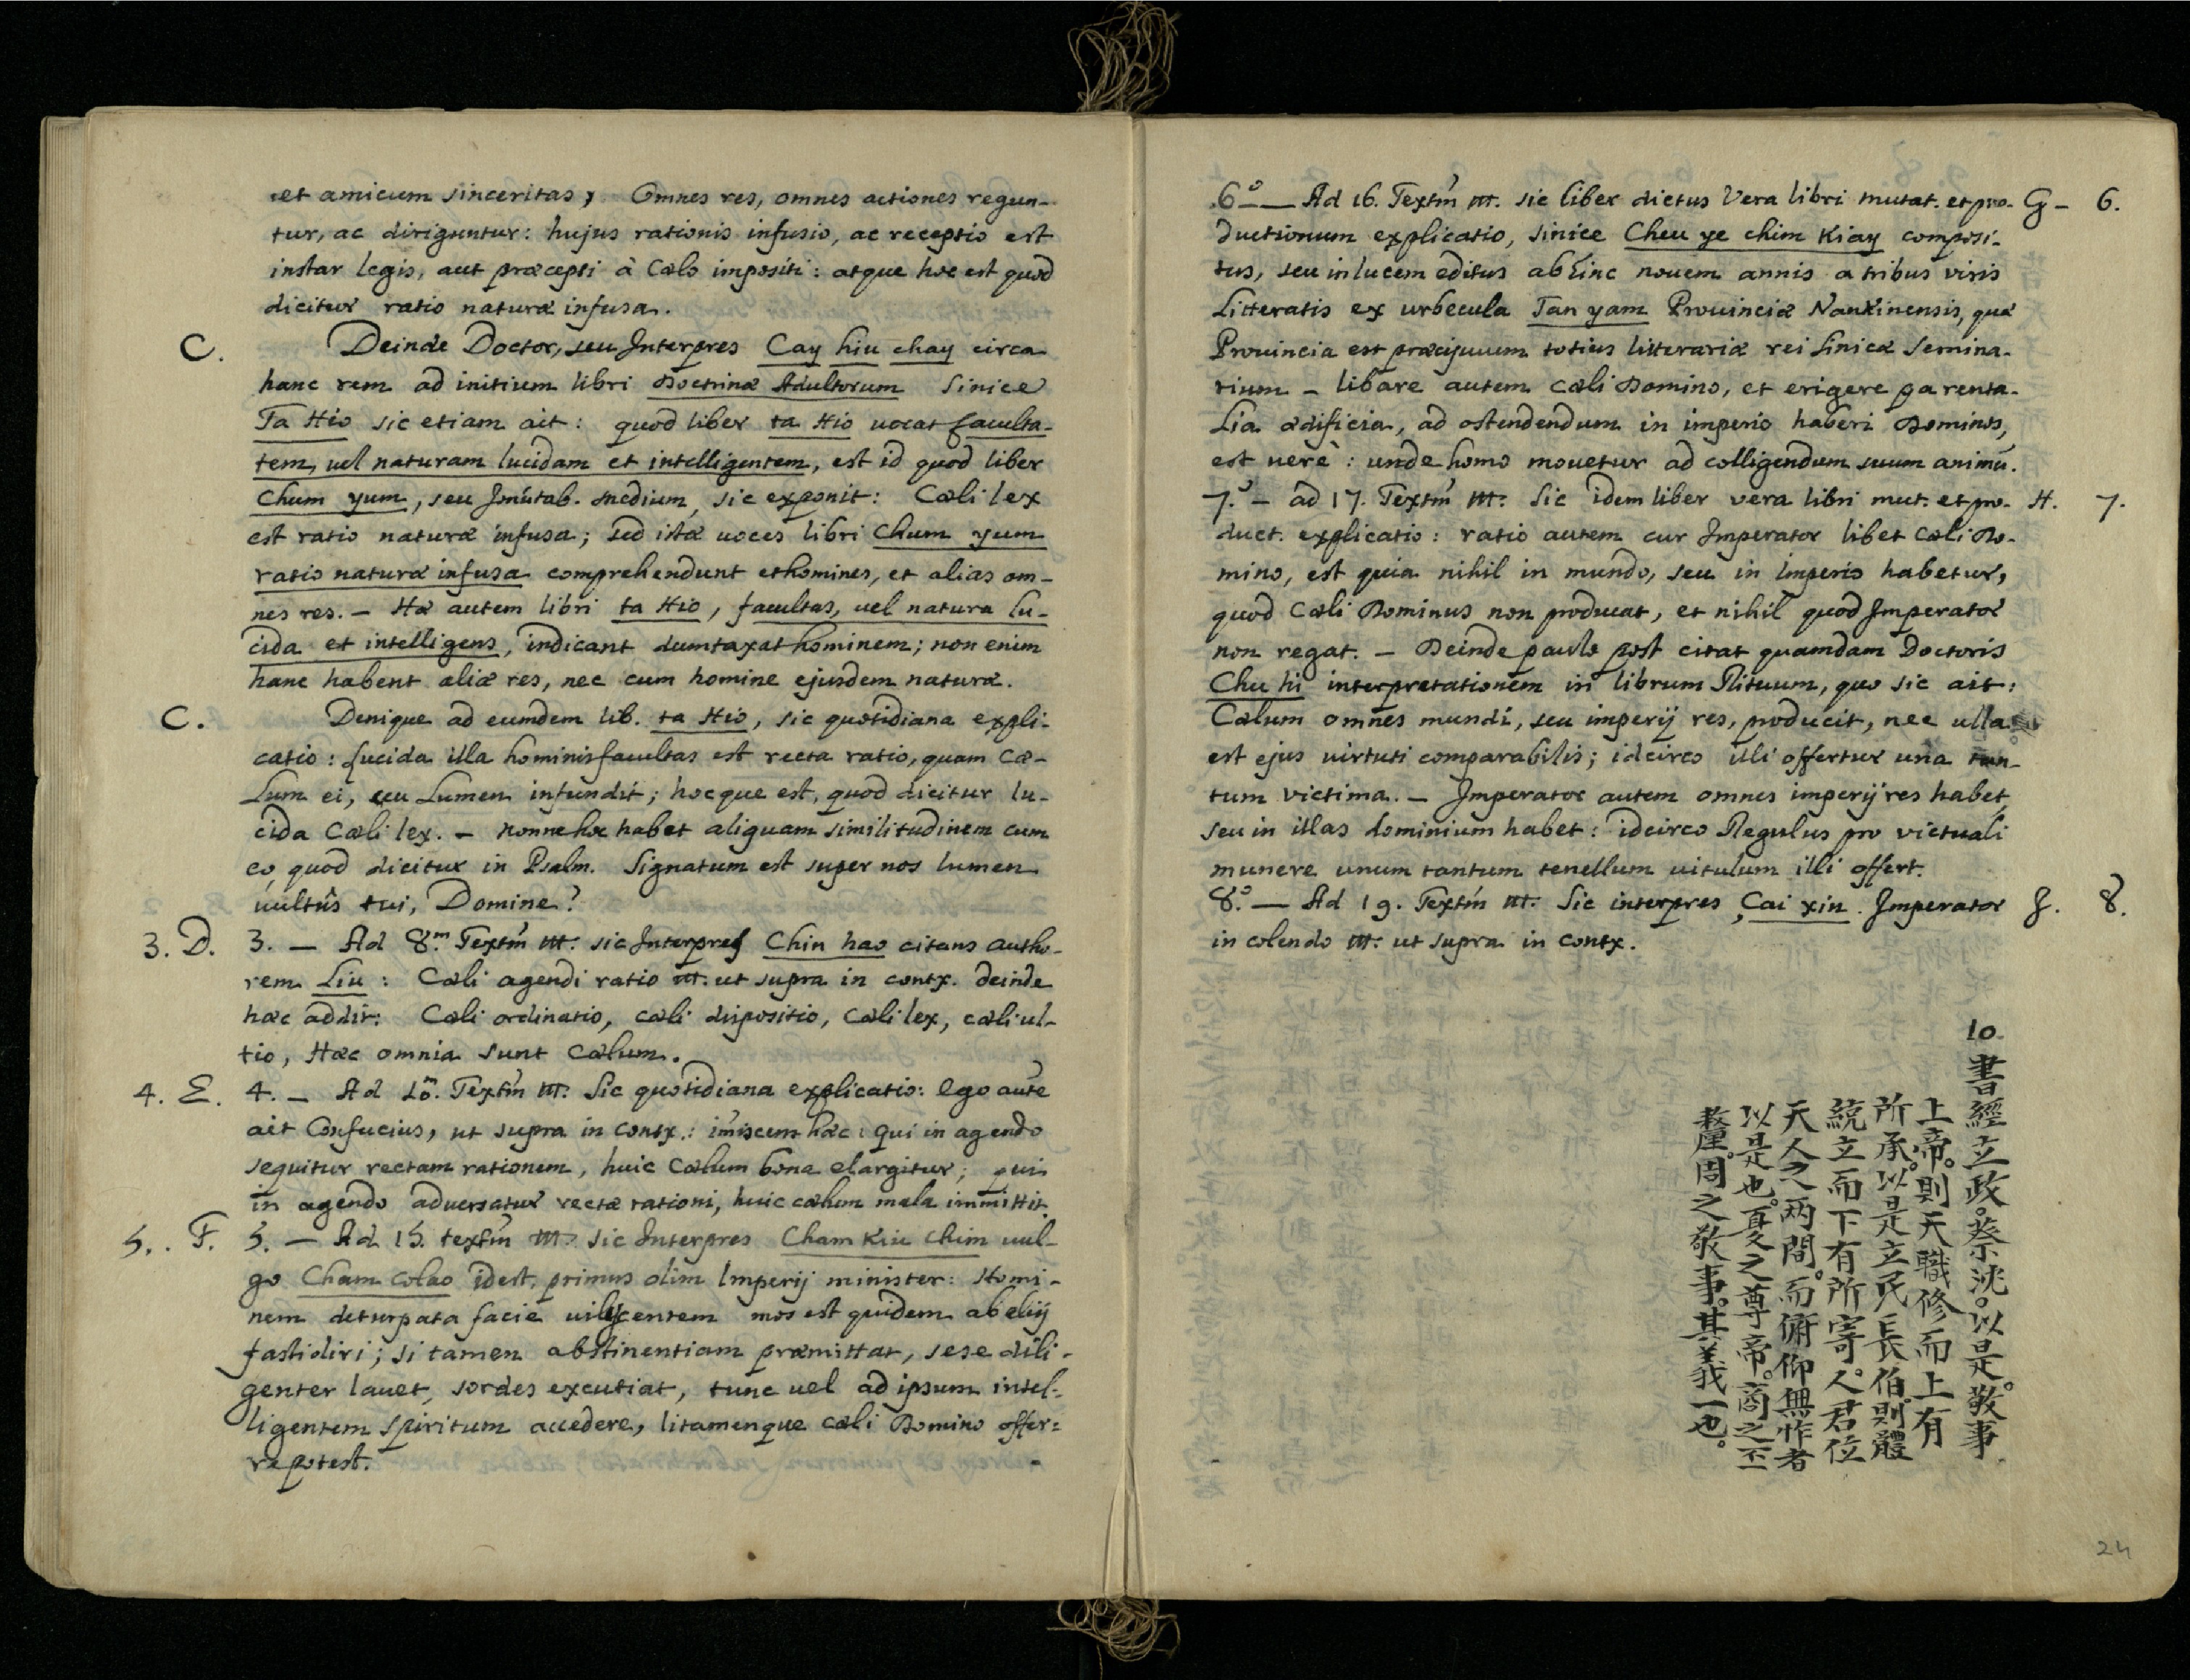 et amicum sinceritas; Omnes res, omnes actiones regun-
tur, ac diriguntur: hujus rationis infusio, ac receptio est
instar legis, aut præcepti à Cælo impositi: atque hoc est quod
dicitur ratio naturæ infusa.
C. Deinde Doctor, seu Interpres Cay hiu chay circa
hanc rem ad initium libri Doctrinæ Adultorum Sinice
Ta Hio sic etiam ait: quod liber ta Hio vocat faculta-
tem, vel naturam lucidam et intelligentem, est id quod liber
Chum yum, seu Imutab. medium, sic exponit: Cæli lex
est ratio naturæ infusa; sed istæ voces libri Chum yum
ratio naturæ infusa comprehendunt et homines, et alias om-
nes res. – Hæ autem libri ta Hio, facultas, vel natura lu-
cida et intelligens, indicant dumtaxat hominem; non enim
hanc habent aliæ res, nec cum homine ejusdem naturæ.
C. Denique ad eumdem lib. ta Hio, sic quotidiana expli-
catio: Lucida illa hominis facultas est recta ratio, quam Cæ-
lum ei, ceu Lumen infundit; hocque est, quod dicitur lu-
cida Cæli lex. – nonne hoc habet aliquam similitudinem cum
eo quod dicitur in Psalm. Signatum est super nos lumen
vultûs tui, Domine?
3. D. 3. – Ad 8.m Textm̃ etc. sic Interpres Chin hao citans autho-
rem Liu: Cæli agendi ratio etc. ut supra in contx. deinde
hæc addit: Cæli ordinatio, cæli dispositio, Cæli lex, cæli ul-
tio, Hæc omnia sunt Cælum.
4. E. 4. – Ad 10.m Textm̃ etc. Sic quotidiana explicatio: Ego autẽ
ait Confucius, ut supra in contx.: im̃iscens hæc: qui in agendo
sequitur rectam rationem, huic Cælum bona elargitur; qui
in agendo adversatur rectæ rationi, huic cælum mala immittit.
5. F. 5. – Ad 15. textm̃ etc. sic Interpres Cham Kiu Chim vul-
go Cham Colao idest, primus olim Imperij minister: Homi-
nem deturpata facie vilescentem mos est quidem ab aliis
fastidiri; si tamen abstinentiam præmittat, sese dili-
genter lavet, sordes excutiat, tunc vel ad ipsum intel-
ligentem Spiritum accedere, litamenque cæli Domino offer-
re potest.
6.º – Ad 16. Textm̃ etc. sic liber dictus Vera libri mutat. et pro- G – 6.
ductionum explicatio, sinice Cheu ye chim Kiay composi-
tus, seu in lucem editus abhinc novem annis a tribus viris
Litteratis ex urbecula Tan yam Provinciæ Nankinensis, quæ
Provincia est præcipuum totius litterariæ rei Sinicæ Semina-
rium – libare autem cæli Domino, et erigere parenta-
lia ædificia, ad ostendendum in imperio haberi Dominos,
est verè: unde homo movetur ad colligendum suum animũ.
7.º – ad 17. Textm̃ etc. Sic idem liber vera libri mut. et pro- H. 7.
duct. explicatio: ratio autem cur Imperator libet Cæli Do-
mino, est quia nihil in mundo, seu in Imperio habetur,
quod Cæli Dominus non producat, et nihil quod Imperator
non regat. – Deinde paulo post citat quamdam Doctoris
Chu hi interpretationem in librum Rituum, quo sic ait:
Cælum omnes mundi, seu imperij res, producit, nec ulla
est ejus virtuti comparabilis; idcirco illi offertur una tan-
tum victima. – Imperator autem omnes imperij res habet
seu in illas dominium habet: idcirco Regulus pro victuali
munere unum tantum tenellum vitulum illi offert.
8.º – Ad 19. Textm̃ etc. Sic interpres Cai xin. Imperator J. 8.
in colendo etc. ut supra in contx.
10.
書經立政。蔡沈。以是。敬事
上帝。則天職修而上有
所承。以是立民長伯。則體
統立而下有所寄。人君位
天人之兩間。而俯仰無怍者
以是也。夏之尊帝。商之丕
釐。周之敬事。其義一也。
24